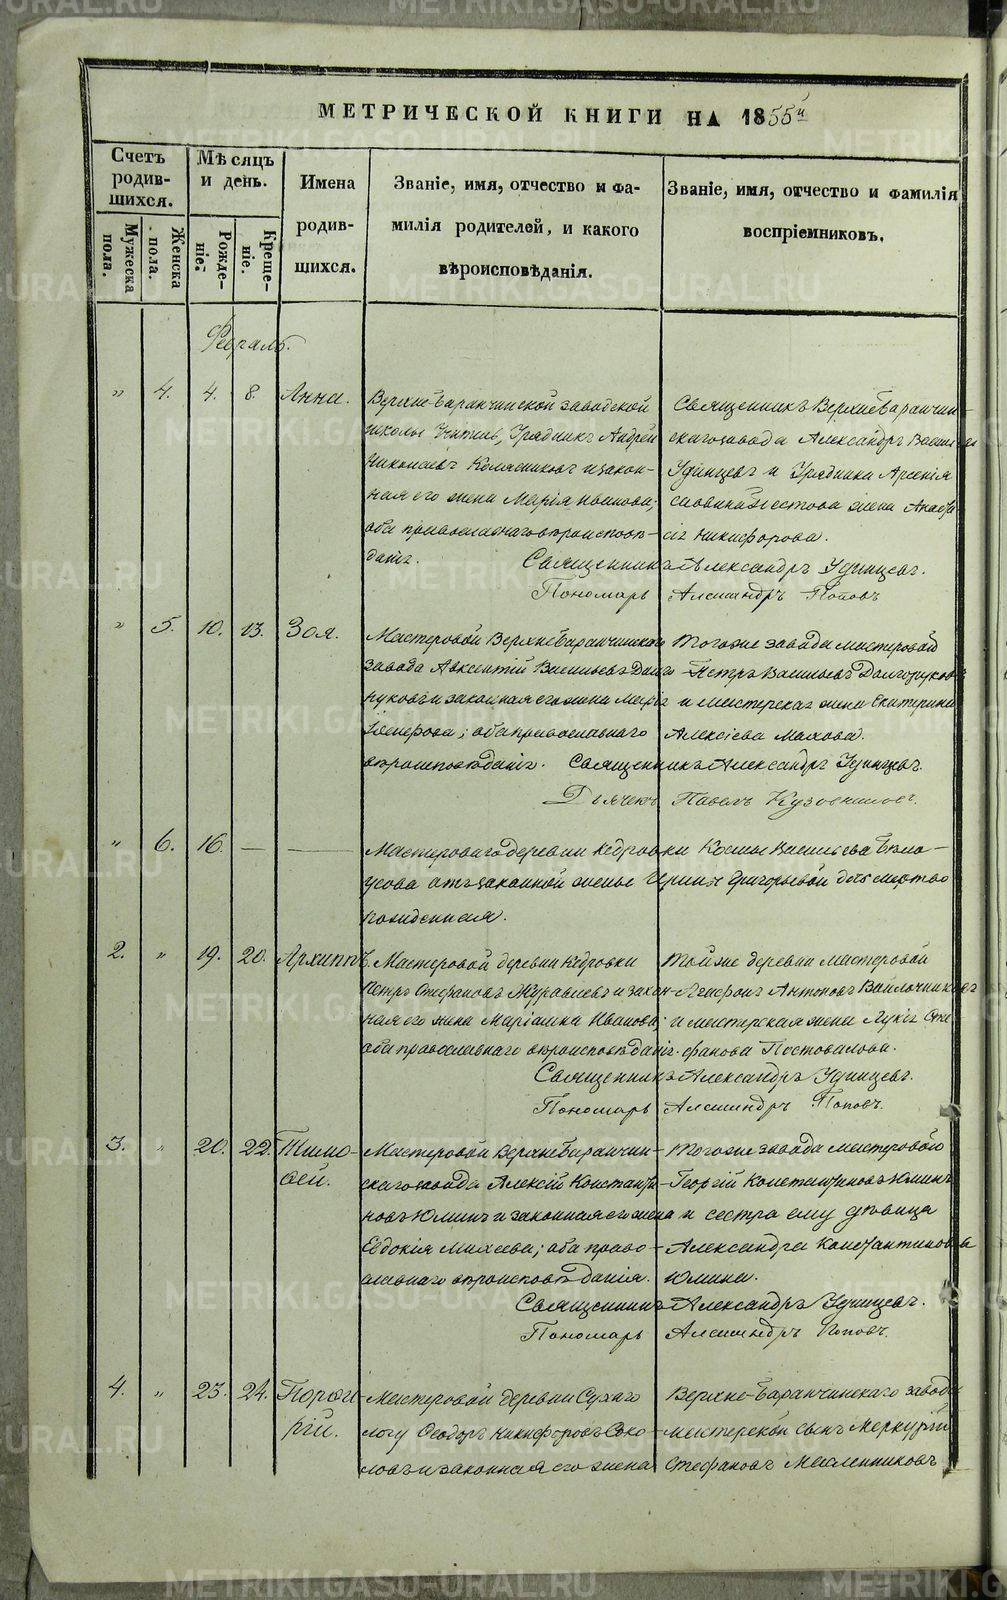 МЕТРИЧЕСКОЙ КНИГИ НА 1855й
Счетъ родив-
шихся.
Мѣсяцъ
и день.
Имена
родив-
шихся.
Званіе, имя, отчество и фа-
милія родителей, и какого
вѣроисповѣданія.
Званіе, имя, отчество и фамилія
воспріемниковъ.
Мужеска
пола.
Женска
пола.
Рожде-
ніе.
Креще-
ніе.
Февраль.
" 4. 4. 8. Анна.
Верхне-Баранчинской заводской
школы Учитель, Урядникъ Андрей
Николаевъ Колясниковъ и закон-
ная его жена Марія Иванова;
оба православнаго вѣроисповѣ-
данія.
Священникъ Верхнебаранчин-
скаго завода Александръ Василье
Удинцевъ и Урядника Арсенія
жена Анаста
сія Никифорова.
Священникъ Александръ Удинцевъ.
Пономарь Александръ Поповъ
" 5. 10. 13. Зоя.
Мастеровой Верхнебаранчинскаго
завода Авксентій Васильевъ Долго
руковъ и законная его жена Марія
; оба православнаго
вѣроисповѣданія.
Тогоже завода мастеровой
Петръ Васильевъ Долгоруковъ
и мастерская жена Екатерина
Алексіева Махова.
Священникъ Александръ Удинцевъ.
Дьячекъ Павелъ Кузовниковъ.
" 6. 16. — —
Мастероваго деревни Кедровки Козмы Васильева Бѣло-
усова отъ законной жены Ирины Григорьевой дочь мертво
рожденная.
2. " 19. 20. Архиппъ.
Мастеровой деревни Кедровки
Петръ Стефановъ Журавлевъ и закон-
ная его жена Маріамна Иванова;
оба православнаго вѣроисповѣданія.
Тойже деревни мастеровой
Агафонъ Антоновъ Войлочниковъ
и мастерская жена Лукія Сте
фанова Постовалова.
Священникъ Александръ Удинцевъ.
Пономарь Александръ Поповъ.
3. " 20. 22. Тимо-
ѳей.
Мастеровой Верхнебаранчин-
скаго завода Алексій Константи-
новъ Юминъ и законная его жена
Евдокія Михеева; оба право-
славнаго вѣроисповѣданія.
Тогоже завода мастеровой
Георгій Константиновъ Юминъ
и сестра ему дѣвица
Александра Константинова
Юмина.
Священникъ Александръ Удинцевъ.
Пономарь Александръ Поповъ.
4. " 23. 24. Порфи-
рій.
Мастеровой деревни Сухаго
логу Ѳеодоръ Никифоровъ Соко-
ловъ и законная его жена
Верхне-Баранчинскаго завода
мастерской сынъ Меркурій
Стефановъ Масленниковъ